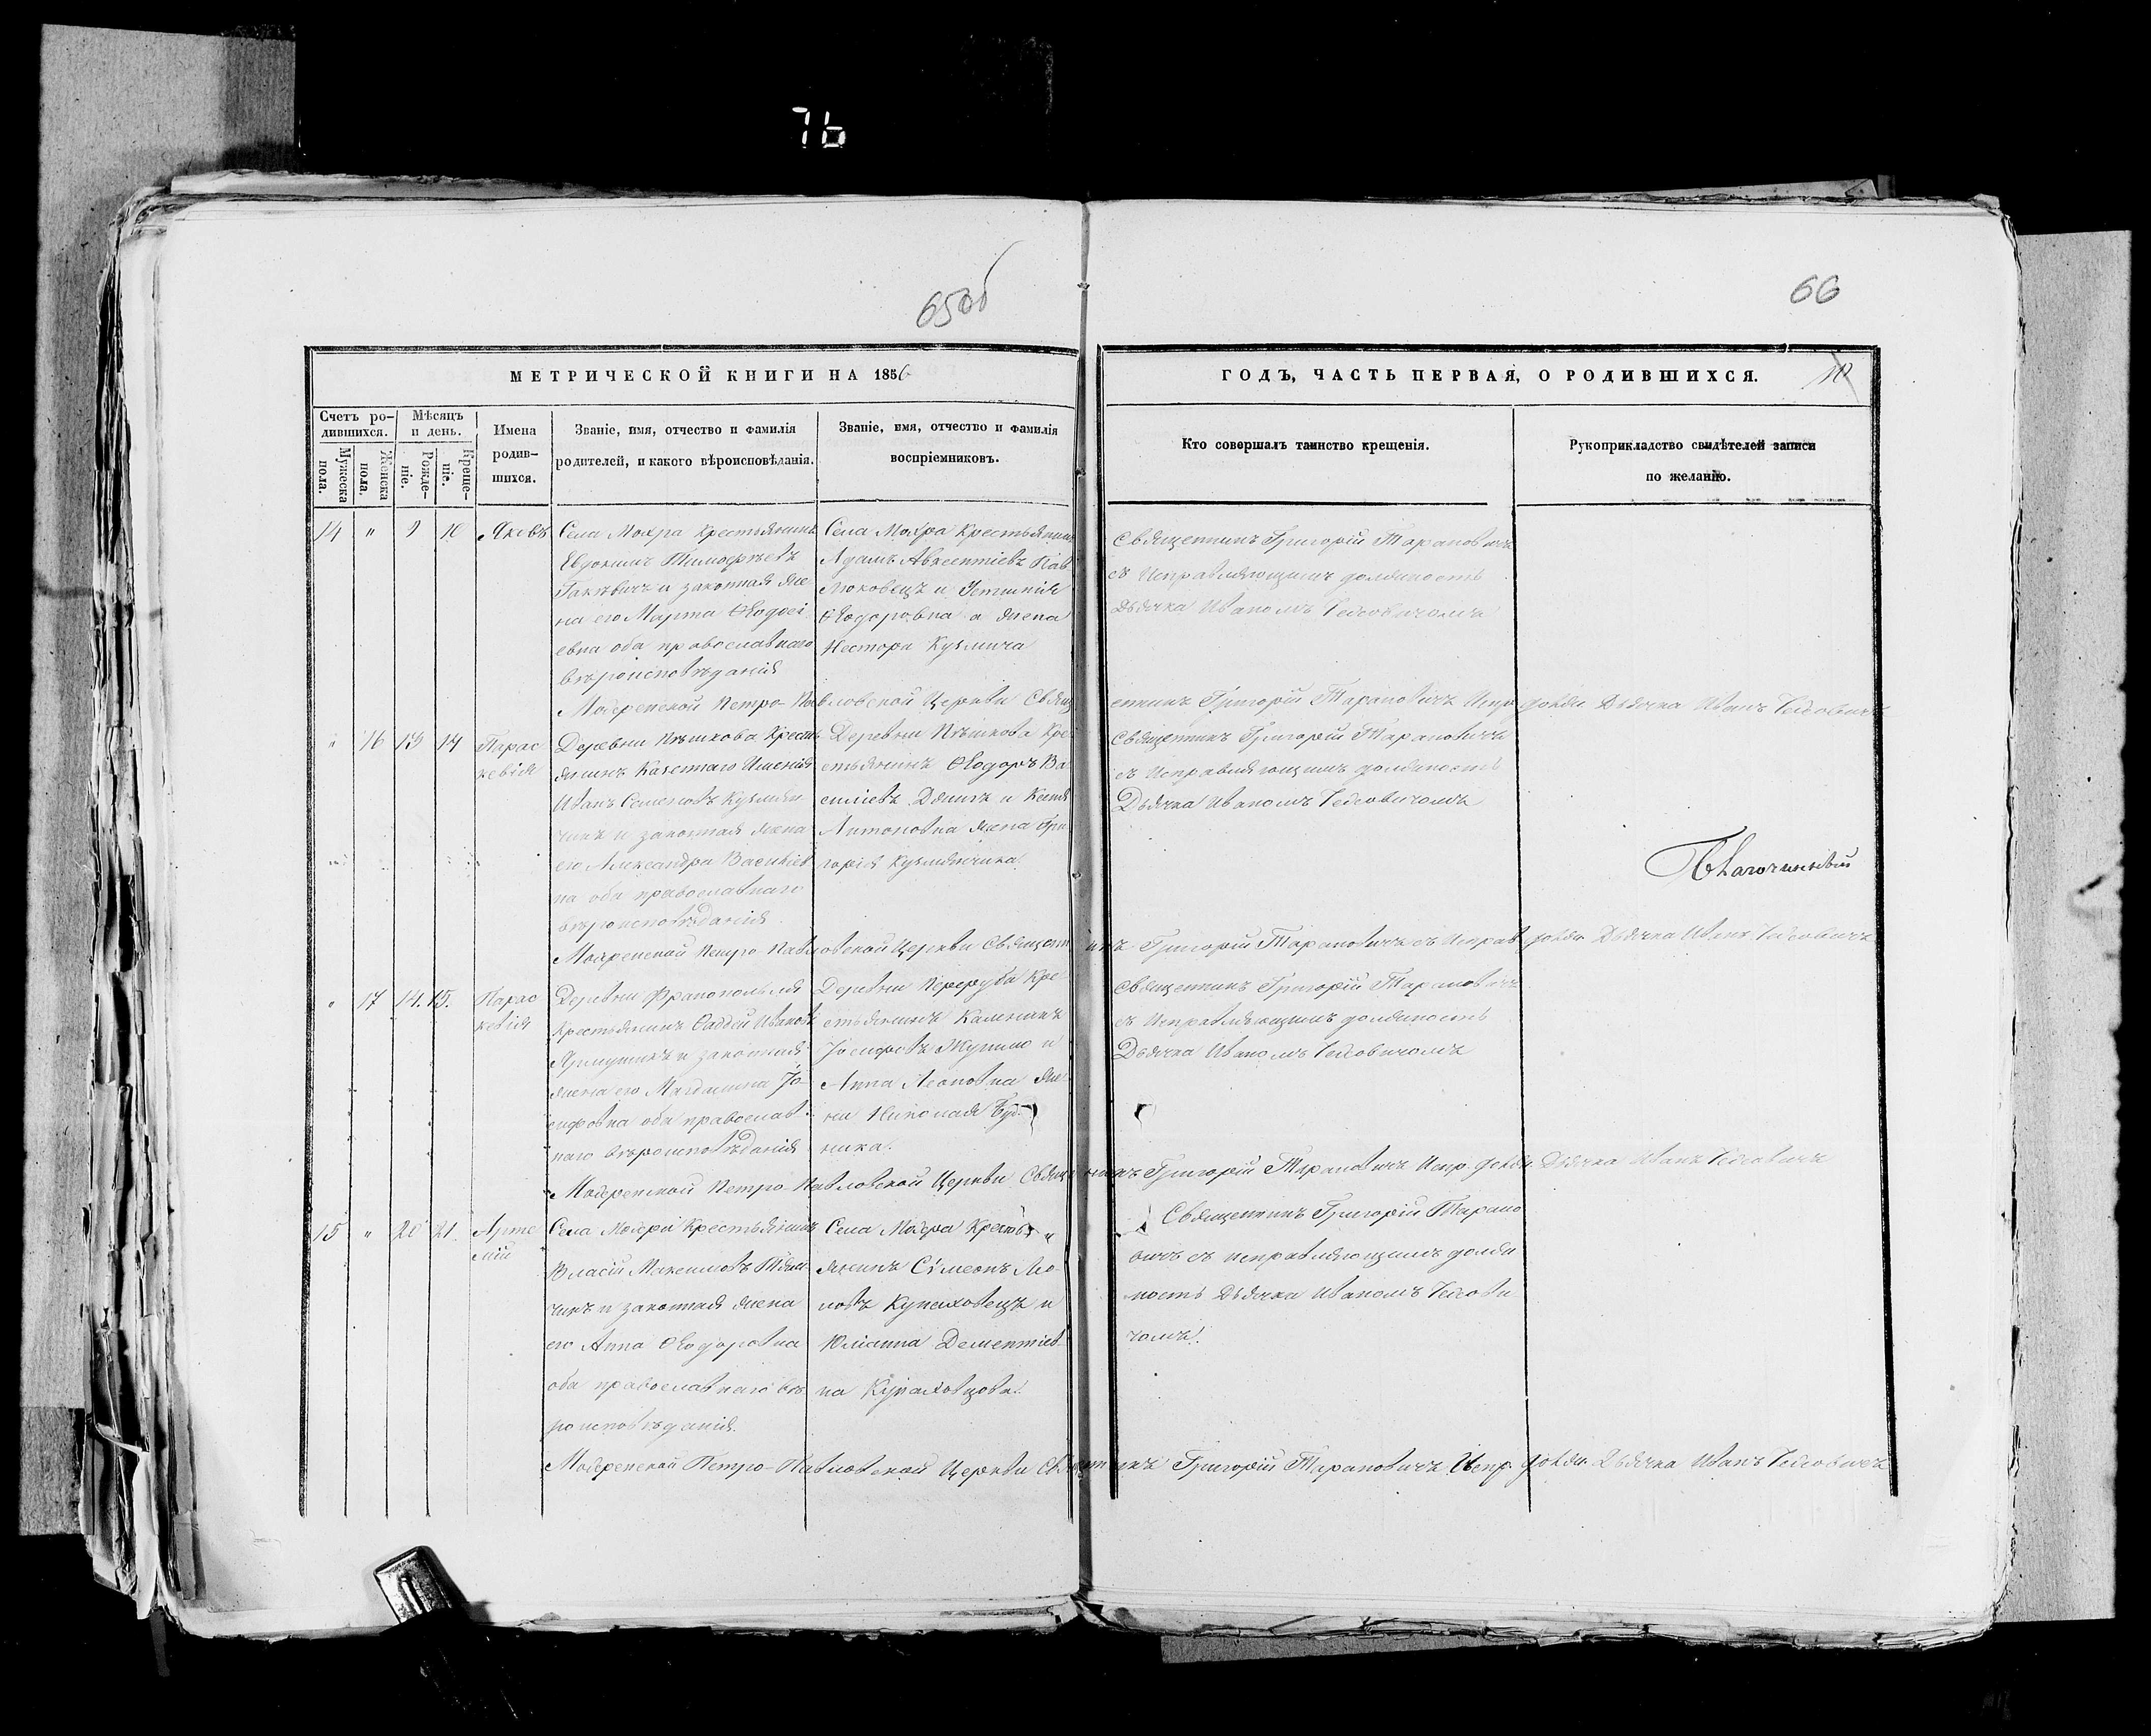 76
65об
66
МЕТРИЧЕСКОЙ КНИГИ НА 1856
ГОДЪ, ЧАСТЬ ПЕРВАЯ, О РОДИВШИХСЯ.
10
Счетъ ро-
дившихся.
Мѣсяцъ
и день.
Мужеска
пола.
Женска
пола.
Рожде-
ніе.
Креще-
ніе.
Имена
родив-
шихся.
Званіе, имя, отчество и фамилія
родителей, и какого вѣроисповѣданія.
Званіе, имя, отчество и фамилія
воспріемниковъ.
Кто совершалъ таинство крещенія.
Рукоприкладство свидѣтелей записи
по желанію.
14 " 9 10 Яковъ
Села Мохра Крестьянинъ
Евдокимъ Тимофѣевъ
и законная же
на его Марта Ѳеодосі
евна оба православнаго
вѣроисповѣданія
Села Мохра Крестьянинъ
Адамъ Авксентіевъ Пав
люковецъ и Устинія
Ѳеодоровна жена
Нестора Кузмича
Священникъ Григорій Тарановичъ
съ Исправляющимъ должность
Дьячка Иваномъ
Мохренской Петро-Павловской Церкви Священникъ Григорій Тарановичъ Испр. Дьячка Иванъ
" 16 13 14 Парас
кевія
Деревни Пѣшкова Кресть
янинъ Казеннаго Имѣнія
Иванъ Семеновъ Кузмян
чикъ и законная жена
его Александра Василіев
на оба православнаго
вѣроисповѣданія
Деревни Пѣшкова Кре
стьянинъ Ѳеодоръ Ва
силіевъ и Ксенія
Антоновна жена Гри
горія Кузмянчика.
Священникъ Григорій Тарановичъ
съ Исправляющимъ должность
Дьячка Иваномъ
Благочинный
Мохренской Петро-Павловской Церкви Священникъ Григорій Тарановичъ съ Исправ. Дьячка Иванъ
" 17 14. 15. Парас
кевія
Деревни Франополья
Крестьянинъ Фаддей Ивановъ
и законная
жена его Магдалина Іо-
сифовна оба православ-
наго вѣроисповѣданія
Деревни Переруба Кре
стьянинъ Калиникъ
Іосифовъ и
Анна Леоновна же
на Николая Буд-
ника.
Священникъ Григорій Тарановичъ
съ Исправляющимъ должность
Дьячка Иваномъ
Мохренской Петро-Павловской Церкви Священникъ Григорій Тарановичъ Испр. Дьячка Иванъ
15 " 20 21. Арте
мій
Села Мохра Крестьянинъ
Власій Максимовъ
чикъ и законная жена
его Анна Ѳеодоровна
оба православнаго вѣ
роисповѣданія.
Села Мохра Кресть
янинъ Сѵмеонъ
и
Юліанна Дементіев-
на
Священникъ Григорій Тарано
вичъ съ исправляющимъ долж
ность Дьячка Иваномъ
чомъ.
Мохренской Петро-Павловской Церкви Священникъ Григорій Тарановичъ Испр. Дьячка Иванъ